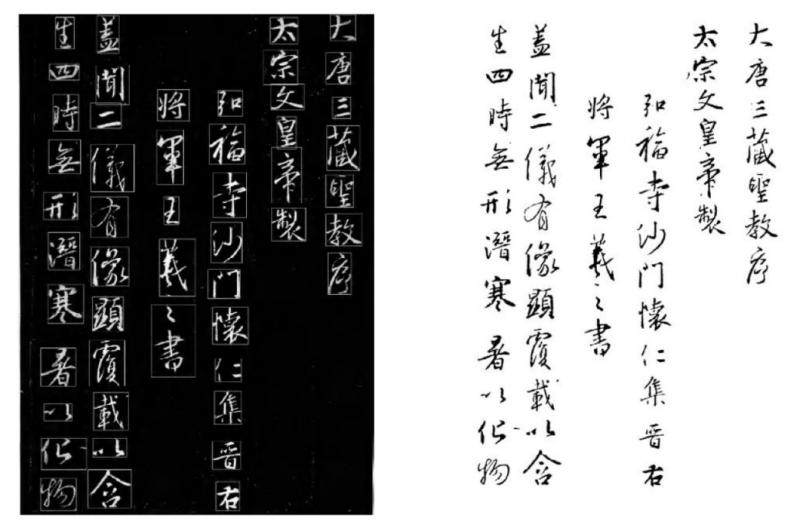 大唐三藏聖教序
太宗文皇帝製
弘福寺沙門懷仁集晉右
将軍王羲之書
盖聞二儀有像顯覆載以含
生四時無形潛寒暑以化物
大唐三藏聖教序
太宗文皇帝製
弘福寺沙門懷仁集晉右
将軍王羲之書
盖聞二儀有像顯覆載以含
生四時無形潛寒暑以化物